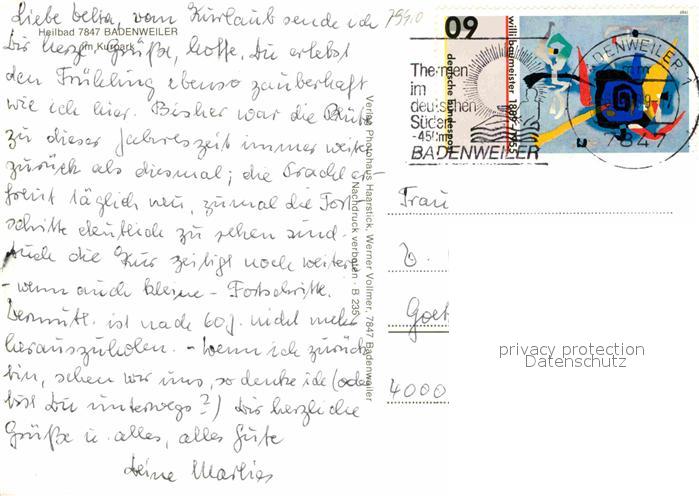 Liebe
Heilbad 7847 BADENWEILER
im Kurpark
Liebe Delia, vom Kurlaub sende ich
Dir herzl. Grüße, hoffe, Du erlebst
den Frühling ebenso zauberhaft
wie ich hier. Bisher war die Blüte
zu dieser Jahreszeit immer weiter
zurück als diesmal; die Pracht er-
freut täglich neu, zumal die Fort-
schritte deutlich zu sehen sind.
Auch die Kur zeitigt noch weitere
- wenn auch kleine - Fortschritte.
Vermutl. ist nach 60 J. nicht mehr
herauszuholen. - Wenn ich zurück
bin, sehen wir uns, so denke ich (oder
bist Du unterwegs?) Dir herzliche
Grüße u. alles, alles Gute
Deine Marlies
Verlag Photohaus Haarstick, Werner Vollmer, 7847 Badenweiler
Nachdruck verboten · B 235
60
willi baumeister 1889-1955
deutsche bundespost
Thermen
im
deutschen
Süden
BADENWEILER
BADENWEILER
7847
Frau
D.
4000
privacy protection
Datenschutz